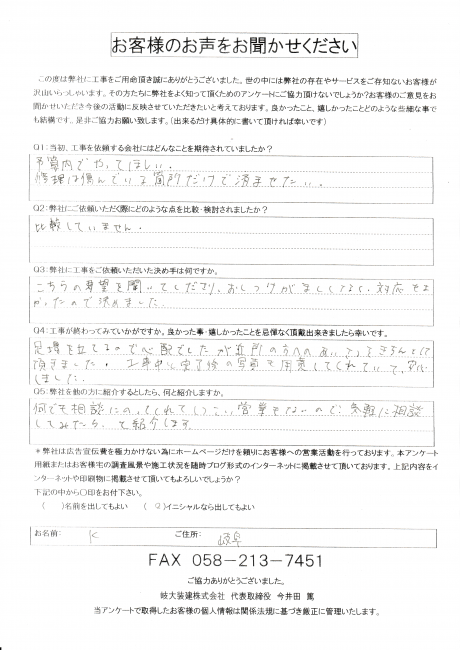 お客様のお声をお聞かせください
この度は弊社に工事をご用命頂き誠にありがとうございました。世の中には弊社の存在やサービスをご存知ないお客様が
沢山いらっしゃいます。その方たちに弊社をよく知って頂くためのアンケートにご協力頂けないでしょうか?お客様のご意見をお
聞かせいただき今後の活動に反映させていただきたいと考えております。良かったこと、嬉しかったことどのような些細な事で
も結構です。是非ご協力お願い致します。(出来るだけ具体的に書いて頂ければ幸いです)
Q1:当初、工事を依頼する会社にはどんなことを期待されていましたか?
予算内でやってほしい。
修理は傷んでいる箇所だけで済ませたい。
Q2:弊社にご依頼いただく際にどのような点を比較・検討されましたか?
比較していません。
Q3:弊社に工事をご依頼いただいた決め手は何ですか。
こちらの希望を聞いてくださり、おしつけがましくなく、対応もよ
かったので決めました。
Q4:工事が終わってみていかがですか。良かった事・嬉しかったことを忌憚なく頂戴出来ましたら幸いです。
足場を立てるので心配でしたが近所の方へのあいさつもきちんとして
頂きました。工事中と完了後の写真も用意してくれていて、安心
しました。
Q5:弊社を他の方に紹介するとしたら、何と紹介しますか。
何でも相談にのってくれてしつこい営業もないので、気軽に相談
してみたら、って紹介します。
*弊社は広告宣伝費を極力かけない為にホームページだけを頼りにお客様への営業活動を行っております。本アンケート
用紙またはお客様宅の調査風景や施工状況を随時ブログ形式のインターネットに掲載させて頂いております。上記内容をイ
ンターネットや印刷物に掲載させて頂いてもよろしいでしょうか?
下記の中から〇印をお付下さい。
( )名前を出してもよい (〇)イニシャルなら出してもよい
お名前: K ご住所: 岐阜
FAX 058-213-7451
ご協力ありがとうございました。
岐大装建株式会社 代表取締役 今井田 篤
当アンケートで取得したお客様の個人情報は関係法規に基づき厳正に管理いたします。